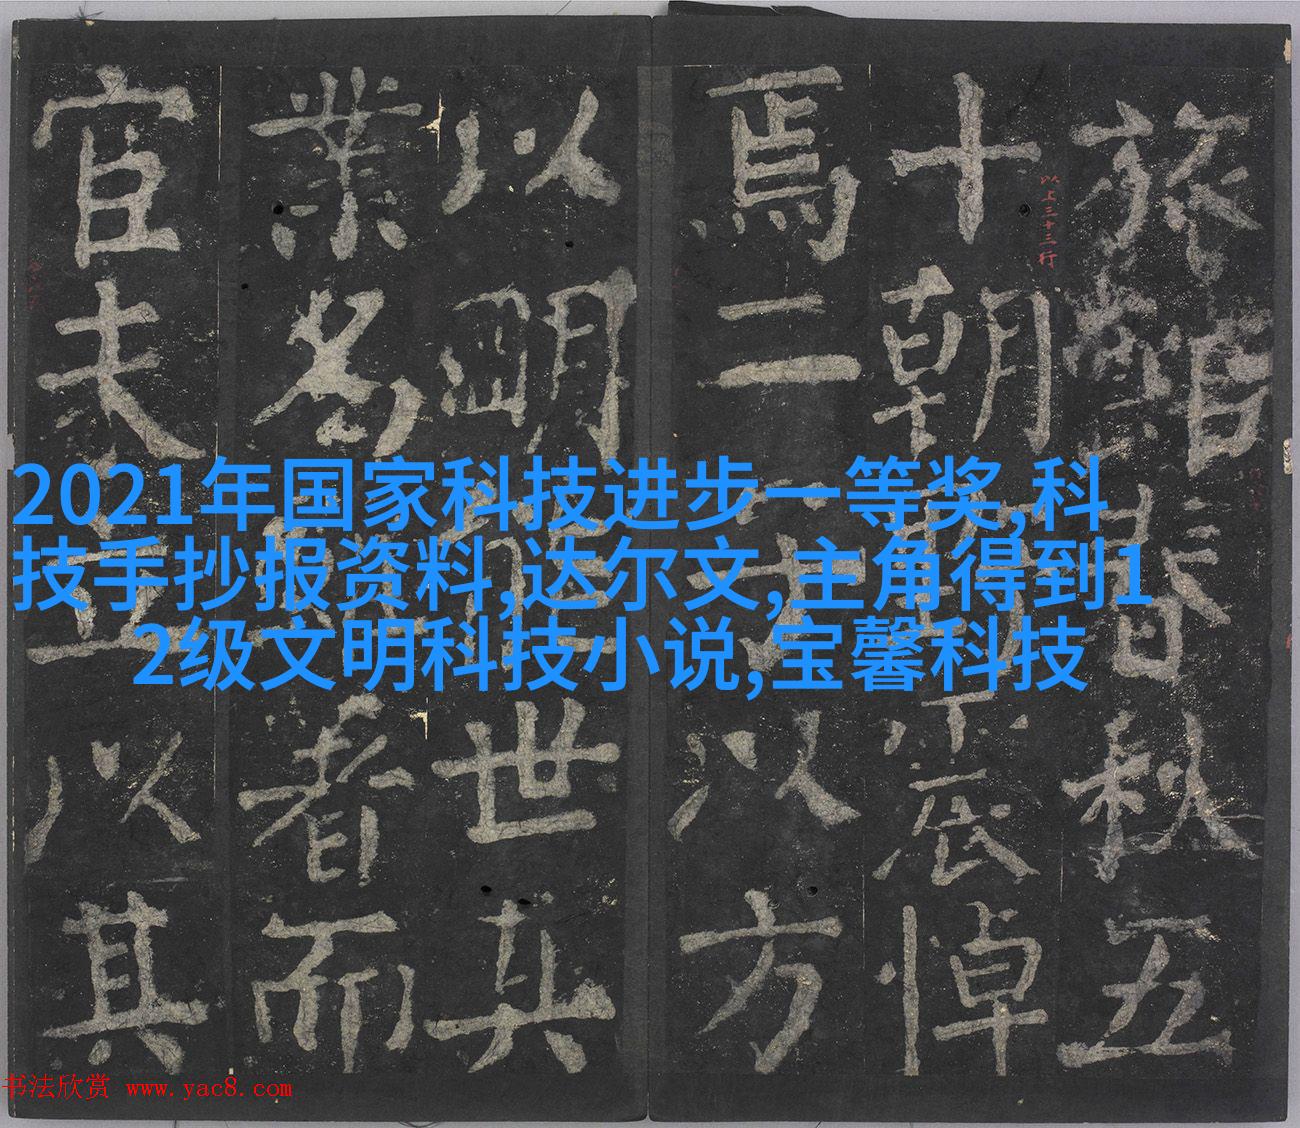 2021年国家科技进步一等奖,科
技手抄报资料,达尔文,主角得到1
2级文明科技小说,宝馨科技
旅館春秋五
十朝震悼
以上三十三行
焉二以方
以明世
業名者而
官夫以其
书法欣赏 www.yac8.com